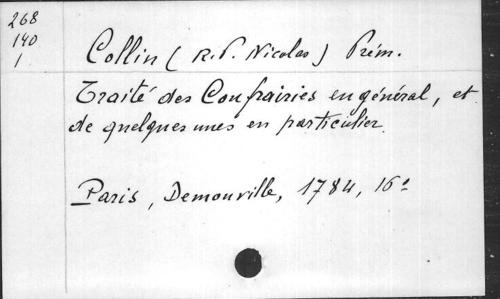 268
140
1
Collin (R.P. Nicolas) Prém.
Traité des Confrairies en général, et
de quelques unes en particulier.
Paris, Demonville, 1784, 16°